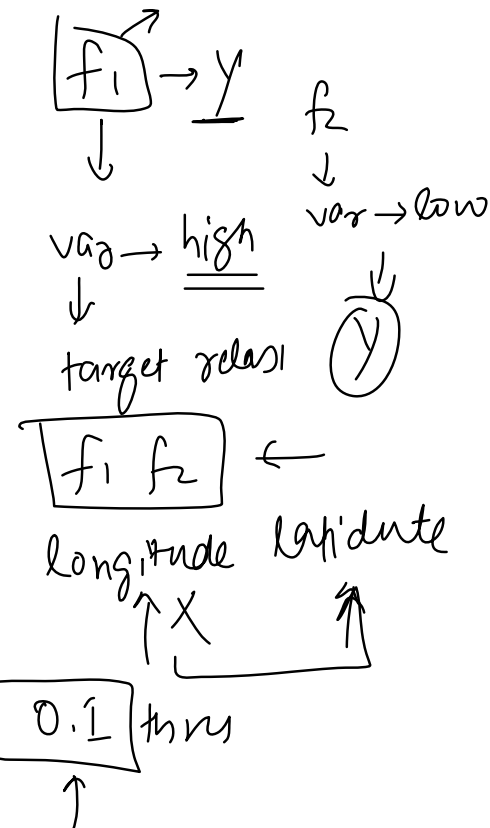 f1 → y
f2
var → low
var → high
y
target relas
f1 f2 ←
longitude lapidute
X
0.1 thres